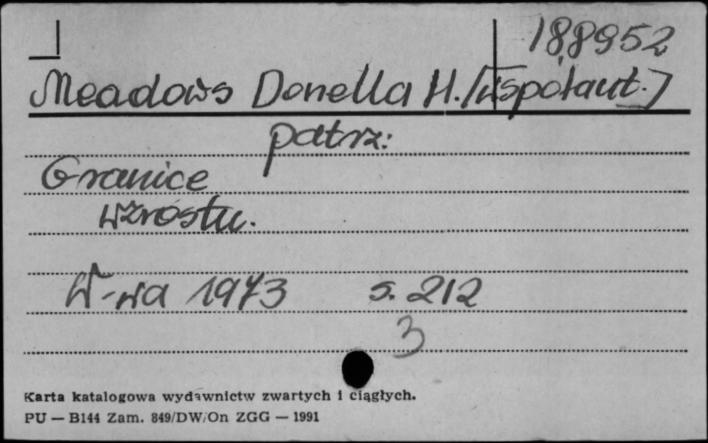 188952
Meadows Donella H. [współaut.]
patrz:
Granice
wzrostu.
W-wa 1973 s. 212
3
Karta katalogowa wydawnictw zwartych i ciągłych.
PU — B144 Zam. 849/DW/On ZGG — 1991